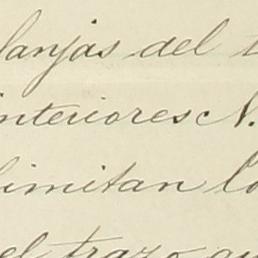 lanjas del t
interiores N.
limitan lo
el trazo qu